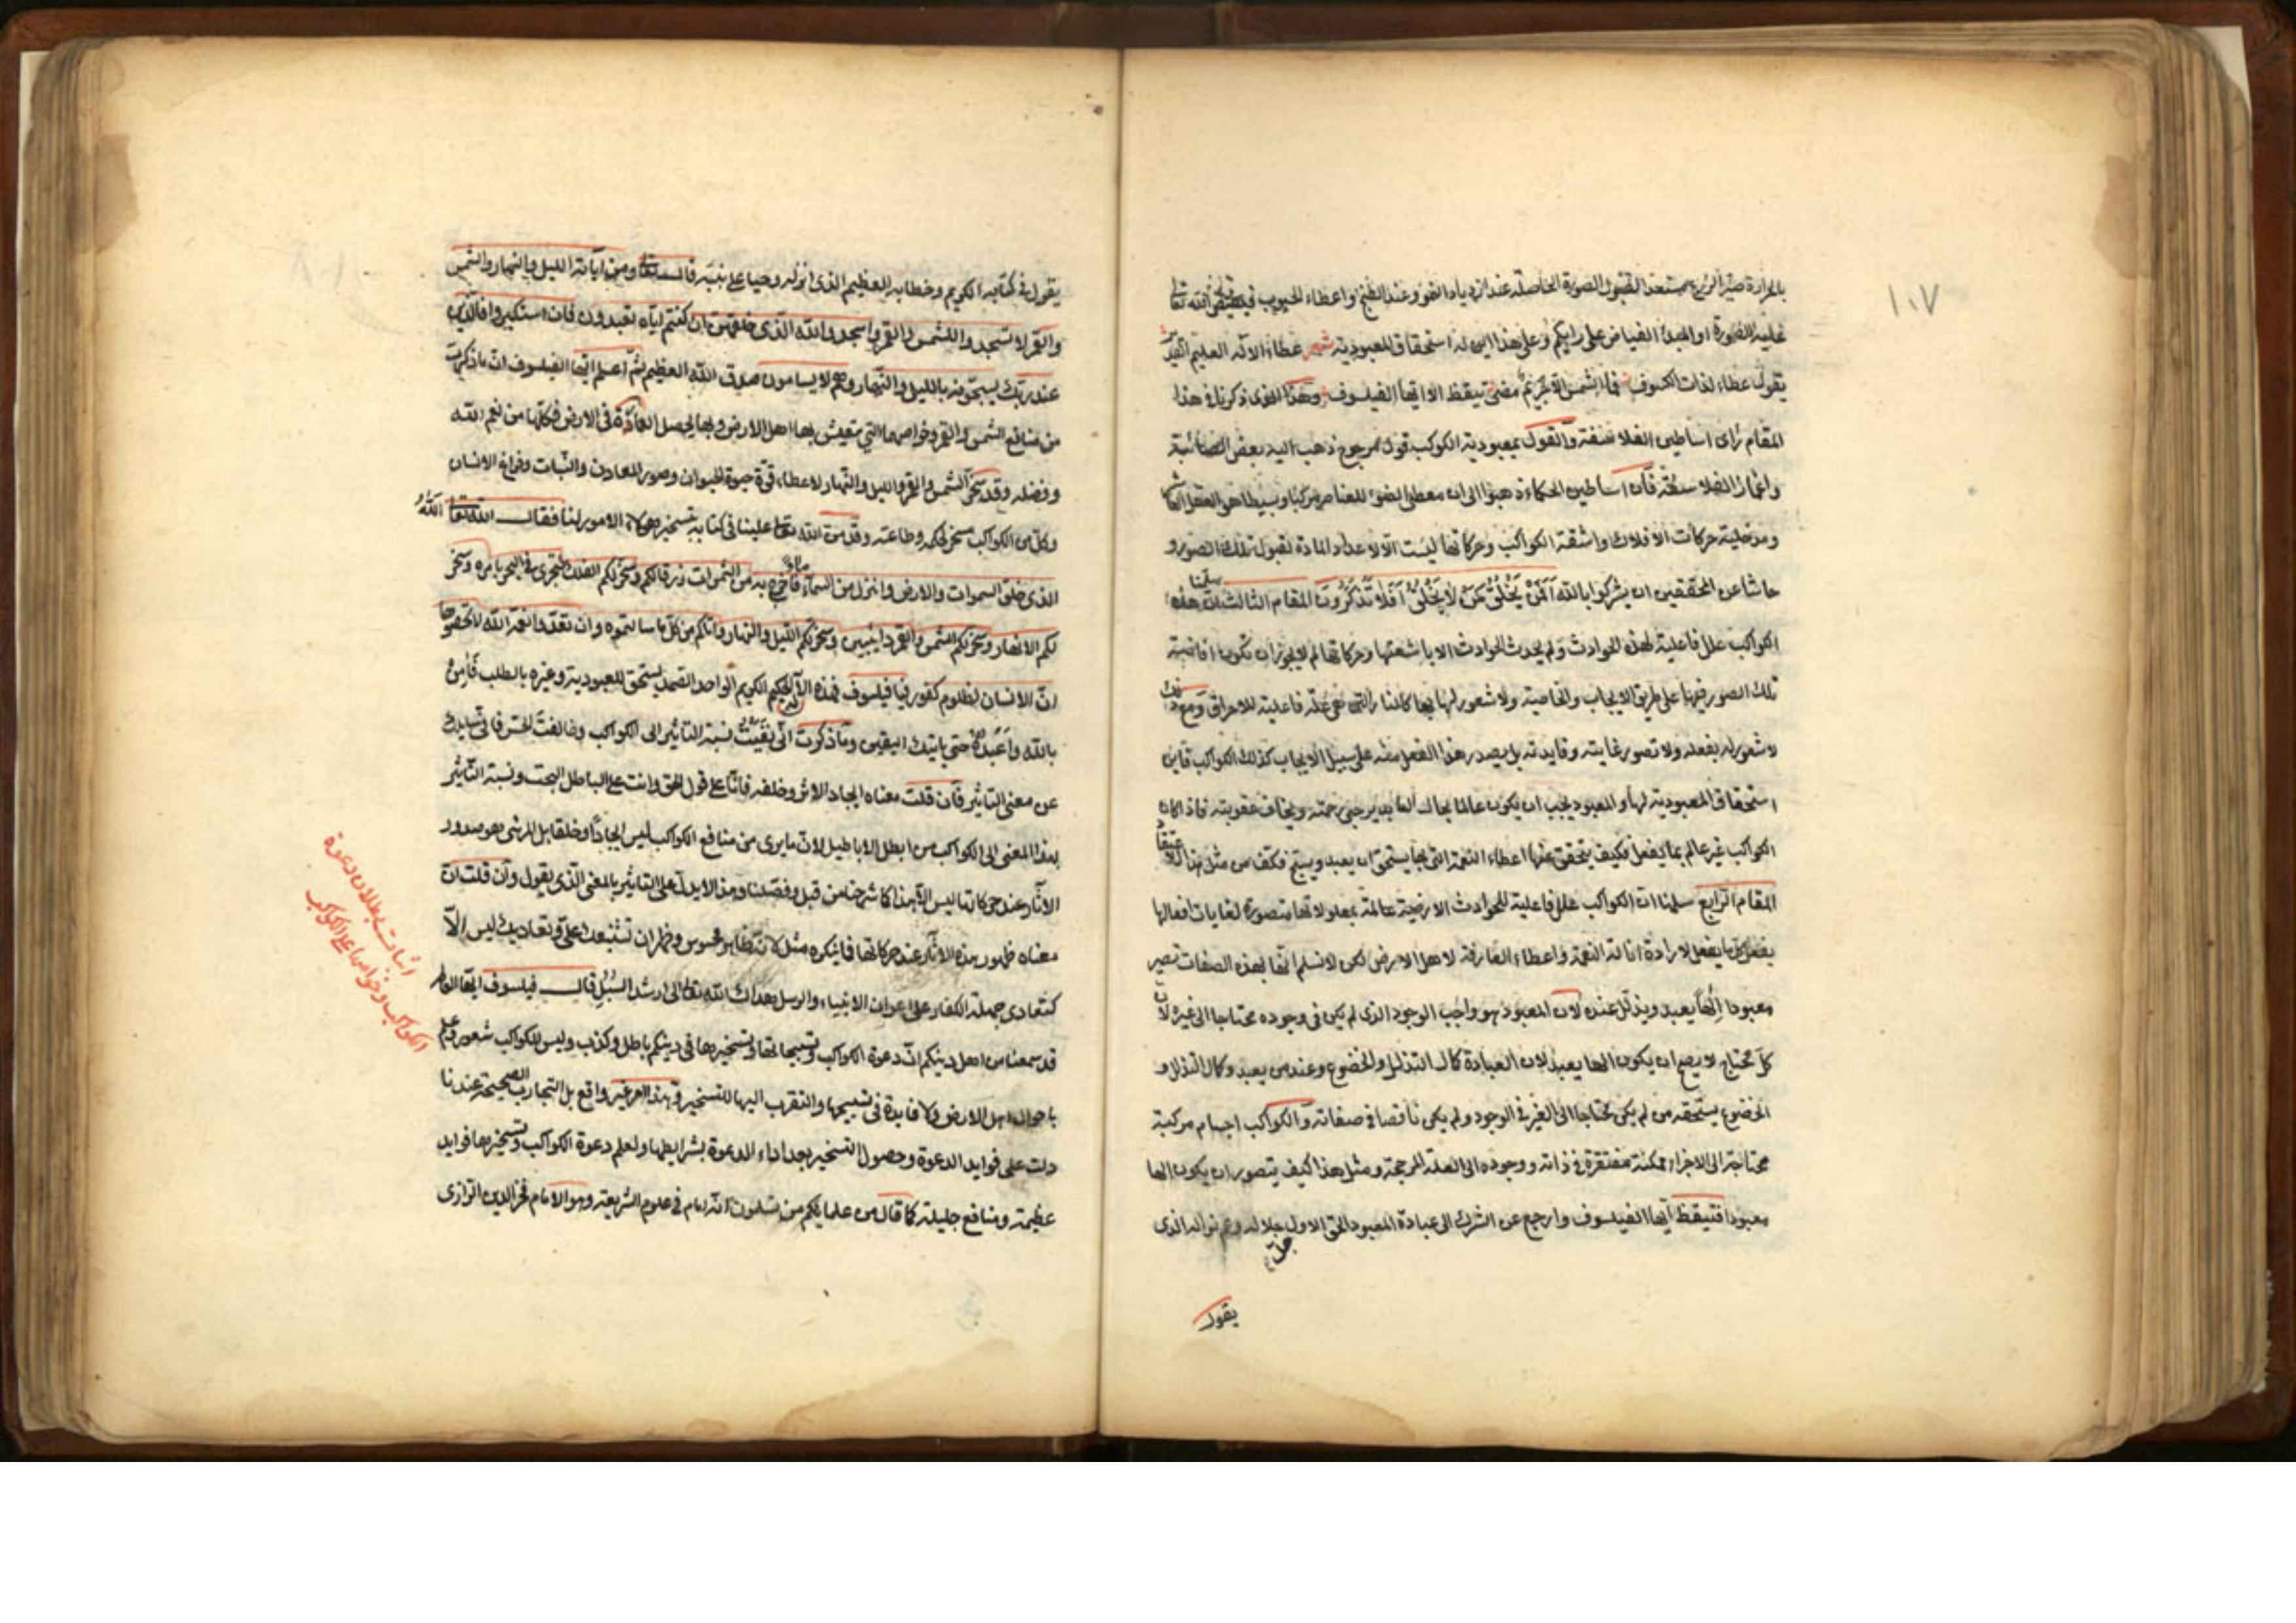 ١٠٧
بالحرارة صيرا لزرع مستعد لقبول الصورة الحاصلة عند ازدياد النمو وعند الطبخ واعطاء الحبوب فيفيض الله تعالى
عليه الصورة او المبدأ الفياض على رايكم وعلى هذا اين له استحقاق المعبودية شعر عطاء الاله العليم القدير
يقول عطاء لذات الكسوف فما الشمس الا مضئ تيقظ الا ايها الفيلسوف وهذا الذى ذكرنا فى هذا
المقام راى اساطين الفلاسفة والقول بمعبودية الكوكب قول مرجوح ذهب اليه بعض الصائبة
واغمار الفلاسفة فان اساطين الحكماء ذهبوا الى ان معطى الصور للعناصر مركبا وبسيطا هو العقل الفعال
ومدخلية حركات الافلاك واشعة الكواكب وحركاتها ليست الا لاعداد المادة لقبول تلك الصور و
حاشا عن المحققين ان يشركوا بالله اَفَمَنْ يَخْلُقُ كَمَنْ لاَ يَخْلُقُ اَفَلاَ تَذَكَّرُونَ المقام الثالث سلمنا ان هذه
الكواكب علل فاعلية لهذه الحوادث ولم يحدث الحوادث الا باشعتها وحركاتها لم لا يجوز ان تكون افاضة
تلك الصور فيها على طريق الايجاب والخاصية ولا شعور لها بها كالنار التى هى علة فاعلية للاحراق ومع ذلك
لا شعور له بفعله ولا تصور غايته وفايدته بل يصدر هذا الفعل منه على سبيل الايجاب كذلك الكواكب فاين
استحقاق المعبودية لها والمعبود يجب ان يكون عالما بحال العابد يرجى رحمته ويخاف عقوبته فاذا كان
الكواكب غير عالم بما يفعل فكيف يتحقق عنها اعطاء النعمة التى بها يستحق ان يعبد ويسبح فكف من مثل هذا الاعتقاد
المقام الرابع سلمنا ان الكواكب علل فاعلية للحوادث الارضية عالمة بمعلولاتها متصورة لغايات افعالها
يفعل كل ما يفعل لارادة انالة النعمة واعطاء العارفة لاهل الارض لكن لا نسلم انها بهذه الصفات تصير
معبودا الها يعبد ويذلل عنده لان المعبود هو واجب الوجود الذى لم يكن فى وجوده محتاجا الى غيره لان
كل محتاج لا يصح ان يكون الها يعبد لان العبادة كمال التذلل والخضوع وعند من يعبد وكمال التذلل و
الخضوع يستحقه من لم يكن محتاجا الى الغير فى الوجود ولم يكن ناقصا فى صفاته والكواكب اجسام مركبة
محتاجة الى الاجزاء ممكنة مفتقرة فى ذاته ووجوده الى العلة المرجحة ومثل هذا كيف يتصور ان يكون الها
معبودا فتيقظ ايها الفيلسوف وارجع عن الشرك الى عبادة المعبود الحق الاول جل جلاله وعم نواله الذى
يقول
يقول فى كتابه الكريم وخطابه العظيم الذى انزله وحيا على نبيه قال الله تعالى ومن آياته الليل والنهار والشمس
والقمر لا تسجدوا للشمس ولا للقمر واسجدوا لله الذى خلقهن ان كنتم اياه تعبدون فان استكبروا فالذين
عند ربك يسبحون له بالليل والنهار وهم لا يسامون صدق الله العظيم ثم اعلم ايها الفيلسوف ان ما ذكرت
من منافع الشمس والقمر وخواصهما التى يتعيش بها اهل الارض وبها يحصل العادة فى الارض فكلها من نعم الله
وفضله وقد سخر الشمس والقمر والليل والنهار لاعطاء قوة حيوة الحيوان وصور المعادن والنبات وفراغ الانسان
وكل من الكواكب مسخر لحكمه وطاعته وقد من الله تعالى علينا فى كتابه بتسخير هؤلاء الامور لنا فقال الله تعالى اَللهُ
الذى خلق السموات والارض وانزل من السماء ماء فاخرج به من الثمرات رزقا لكم وسخر لكم الفلك لتجرى فى البحر بامره وسخر
لكم الانهار وسخر لكم الشمس والقمر دايبين وسخر لكم الليل والنهار واتاكم من كل ما سالتموه وان تعدوا نعمة الله لا تحصوها
ان الانسان لظلوم كفور فيا فيلسوف فهذه الاله الحكيم الكريم الواحد الصمد يستحق للمعبودية وغيره بالطلب فآمن
بالله واعبده حتى ياتيك اليقين وما ذكرت انى نفيت نسبة التأثير الى الكواكب وخالفت الحس فانى سايلك
عن معنى التأثير فان قلت معناه ايجاد الاثر وخلقه فانا على قول الحق وانت على الباطل البحت ونسبة التأثير
بهذا المعنى الى الكواكب من ابطل الاباطيل لان ما يرى من منافع الكواكب ليس ايجادا وخلقا بل المرئى هو صدور
الآثار عند حركاتها ليس الا بهذا كما شرحنا من قبل وفصلنا وهذا لا يدل على التأثير بالمعنى الذى يقول وان قلت ان
معناه ظهور هذه الآثار عند حركاتها فما ينكره مثل لانه ظاهر محسوس وتعاديك ليس الا
كتعادى جملة الكفار على اعوان الانبياء والرسل هداك الله تعالى الى ارشد السبل قال فيلسوف ايها العالم
قد سمعنا من اهل دينكم ان دعوة الكواكب وتسبيحاتها وتسخيرها فى دينكم باطل وكذب وليس للكواكب شعور وعلم
باحوال اهل الارض ولا فايدة فى تسبيحها والتقرب اليها للتسخير وهذا امر غير واقع بل التجارب الصحيحة عندنا
دلت على فوايد الدعوة وحصول التسخير بعد اداء الدعوة بشرايطها ولعلم دعوة الكواكب وتسخيرها فوايد
عظيمة ومنافع جليلة كما قال من علمايكم من تسلمون انه امام فى علوم الشريعة وهو الامام فخر الدين الرازى
اثبات بطلان دعوة
الكواكب وخواصها على الكواكب